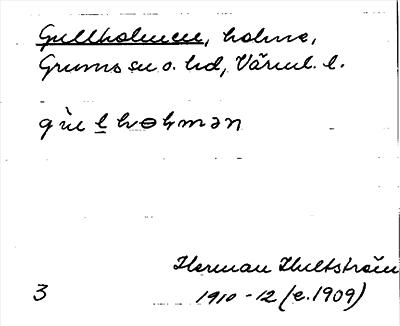 Gullholmen, holme,
Grums sn o. hd, Värml. l.
Herman Hultström
3 1910-12 (e. 1909)